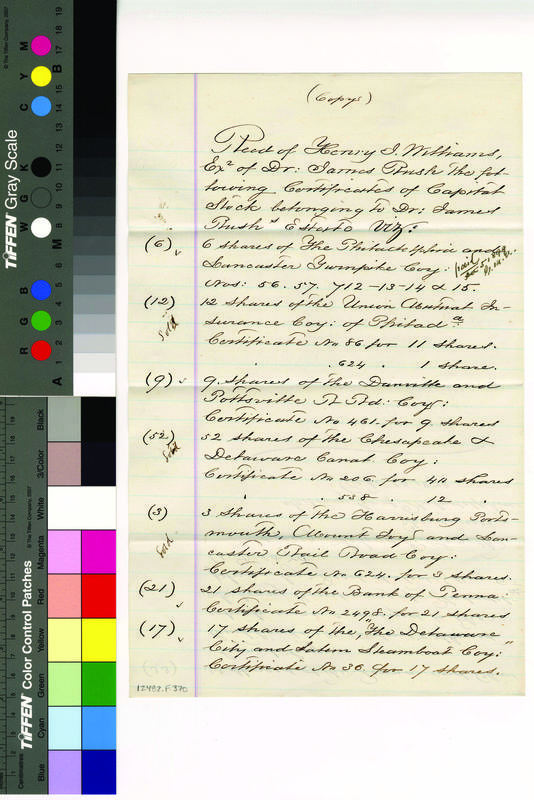 (Copy.)
Recd of Henry J. Williams,
Exr of Dr: James Rush the fol-
lowing Certificates of Capital
Stock belonging to Dr: James
Rush's Estate Viz:
(6) 6 shares of The Philadelphia and
Lancaster Turnpike Coy:
Nos: 56. 57. 712-13-14 & 15.
(12) 12 Shares of the Union Mutual In-
Sold surance Coy: of Philada:
Certificate No 86 for 11 shares.
" 624 . 1 share.
(9) 9. shares of the Danville and
Pottsville R Rd: Coy:
Certificate No 461. for 9 shares
(52) 52 shares of the Chesapeake &
Sold Delaware Canal Coy:
Certificate No 206. for 40 shares
" 538 . 12 .
(3) 3 Shares of the Harrisburg Ports-
mouth, Mount Joy and Lan-
Sold caster Rail Road Coy:
Certificate No 624. for 3 shares.
(21) 21 shares of the Bank of Penna
Certificate No 2498. for 21 shares
(17) 17 shares of the, "The Delaware
City and Salem Steamboat Coy:"
Certificate No 36. for 17 shares.
12492.F.370
TIFFEN Gray Scale
© The Tiffen Company, 2007
R G B W G K C Y M
A 1 2 3 4 5 6 M 8 9 10 11 12 13 14 15 B 17 18 19
TIFFEN Color Control Patches
© The Tiffen Company, 2007
Centimetres
Blue Cyan Green Yellow Red Magenta White 3/Color Black